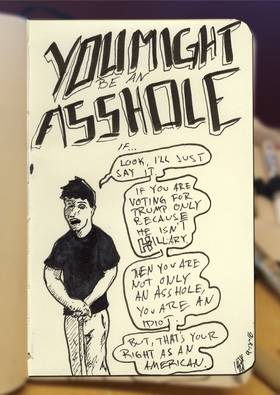 YOU MIGHT
BE AN
ASSHOLE
IF...
LOOK, I'LL JUST
SAY IT.
IF YOU ARE
VOTING FOR
TRUMP ONLY
BECAUSE
HE ISN'T
HILLARY
THEN YOU ARE
NOT ONLY
AN ASSHOLE,
YOU ARE AN
IDIOT.
BUT, THAT'S YOUR
RIGHT AS AN
AMERICAN.